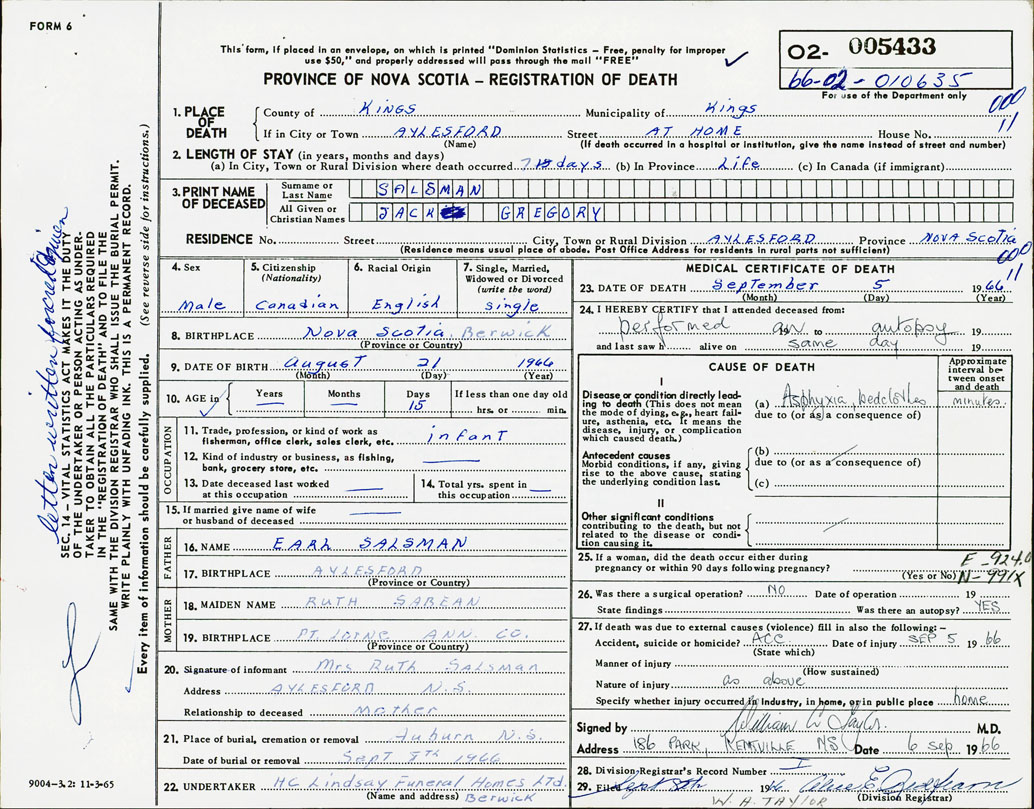 FORM 6
This form, if placed in an envelope, on which is printed "Dominion Statistics – Free, penalty for improper
use $50," and properly addressed will pass through the mail "FREE"
O2- 005433
66-02-010635
For use of the Department only
PROVINCE OF NOVA SCOTIA – REGISTRATION OF DEATH
000
11
1. PLACE OF DEATH
County of Kings Municipality of Kings
If in City or Town AYLESFORD Street AT HOME House No.
(Name) (If death occurred in a hospital or institution, give the name instead of street and number)
2. LENGTH OF STAY (in years, months and days)
(a) In City, Town or Rural Division where death occurred days (b) In Province Life (c) In Canada (if immigrant)
3. PRINT NAME OF DECEASED
Surname or Last Name SALSMAN
All Given or Christian Names JACK GREGORY
RESIDENCE No. Street City, Town or Rural Division AYLESFORD Province NOVA SCOTIA
(Residence means usual place of abode. Post Office Address for residents in rural parts not sufficient)
000
11
4. Sex Male
5. Citizenship (Nationality) Canadian
6. Racial Origin English
7. Single, Married, Widowed or Divorced (write the word) single
8. BIRTHPLACE Nova Scotia Berwick
(Province or Country)
9. DATE OF BIRTH August 21 1966
(Month) (Day) (Year)
10. AGE in Years Months Days 15 If less than one day old hrs. or min.
OCCUPATION
11. Trade, profession, or kind of work as fisherman, office clerk, sales clerk, etc. infant
12. Kind of industry or business, as fishing, bank, grocery store, etc.
13. Date deceased last worked at this occupation
14. Total yrs. spent in this occupation
15. If married give name of wife or husband of deceased
FATHER
16. NAME EARL SALSMAN
17. BIRTHPLACE AYLESFORD
(Province or Country)
MOTHER
18. MAIDEN NAME RUTH SABEAN
19. BIRTHPLACE PT LORNE ANN. CO.
(Province or Country)
20. Signature of informant Mrs Ruth Salsman
Address AYLESFORD N.S.
Relationship to deceased Mother
21. Place of burial, cremation or removal Auburn N.S.
Date of burial or removal Sept 8th 1966
22. UNDERTAKER HC Lindsay Funeral Homes Ltd.
(Name and address) Berwick
MEDICAL CERTIFICATE OF DEATH
23. DATE OF DEATH September 5 1966
(Month) (Day) (Year)
24. I HEREBY CERTIFY that I attended deceased from:
performed AN to autopsy 19
and last saw h alive on same day 19
CAUSE OF DEATH
Approximate interval between onset and death
I
Disease or condition directly leading to death (This does not mean the mode of dying, e.g., heart failure, asthenia, etc. It means the disease, injury, or complication which caused death.)
(a) Asphyxia, bedclothes minutes.
due to (or as a consequence of)
Antecedent causes
Morbid conditions, if any, giving rise to the above cause, stating the underlying condition last.
(b)
due to (or as a consequence of)
(c)
II
Other significant conditions
contributing to the death, but not related to the disease or condition causing it.
25. If a woman, did the death occur either during pregnancy or within 90 days following pregnancy?
(Yes or No)
E-924.0
N-991X
26. Was there a surgical operation? NO Date of operation 19
State findings Was there an autopsy? YES
27. If death was due to external causes (violence) fill in also the following:–
Accident, suicide or homicide? ACC. Date of injury SEP 5 1966
(State which)
Manner of injury
(How sustained)
Nature of injury as above
Specify whether injury occurred in Industry, in home, or in public place home
Signed by William C Taylor. M.D.
Address 186 PARK, KENTVILLE NS Date 6 sep 1966
28. Division Registrar's Record Number
29. Filed Sept 8th 1966
W. A. TAYLOR (Division Registrar)
SEC. 14 – VITAL STATISTICS ACT MAKES IT THE DUTY
OF THE UNDERTAKER OR PERSON ACTING AS UNDER-
TAKER TO OBTAIN ALL THE PARTICULARS REQUIRED
IN THE "REGISTRATION OF DEATH" AND TO FILE THE
SAME WITH THE DIVISION REGISTRAR WHO SHALL ISSUE THE BURIAL PERMIT.
WRITE PLAINLY WITH UNFADING INK. THIS IS A PERMANENT RECORD.
Every item of information should be carefully supplied. (See reverse side for instructions.)
letter written for
9004-3.2: 11-3-65